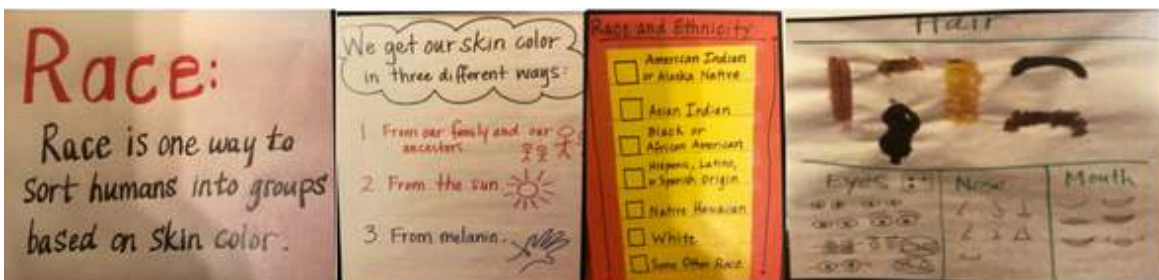 Race:
Race is one way to
sort humans into groups
based on skin color.
We get our skin color
in three different ways:
1. From our family and our
ancestors.
2. From the sun.
3. From melanin.
Race and Ethnicity
American Indian
or Alaska Native
Asian Indian
Black or
African American
Hispanic, Latino,
or Spanish Origin
Native Hawaiian
White
Some Other Race
Hair
Eyes
Nose
Mouth